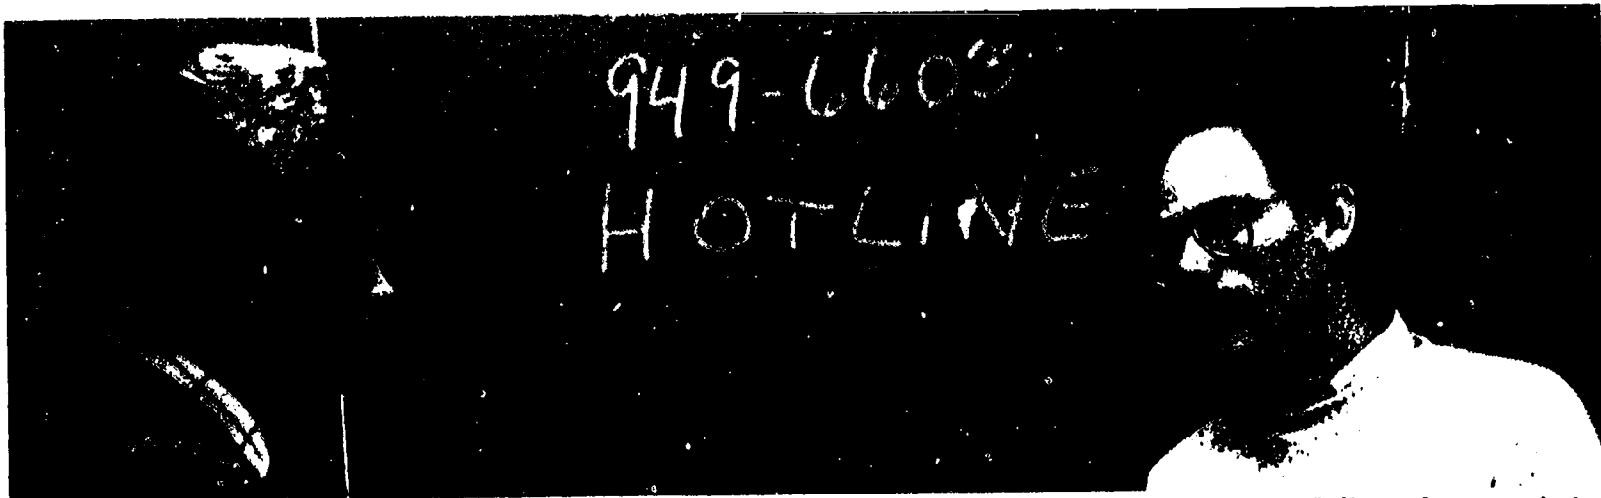 949-6603
HOTLINE